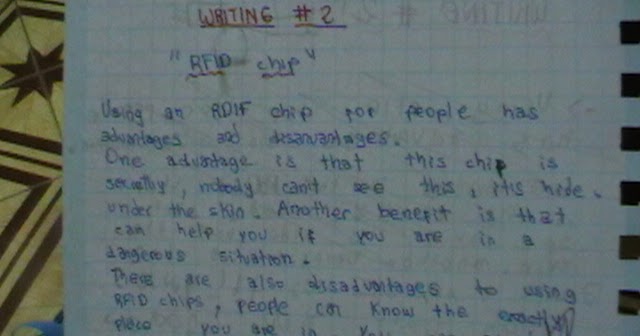 WRITING # 2
"RFID chip"
Using an RDIF chip for people has
advantages and disarvantages.
One advantage is that this chip is
security, nobody can't see this, it is hide.
under the skin. Another benefit is that
can help you if you are in a
dangerous situation.
There are also disadvantages to using
RFID chips, people can know the exactly
place you are in